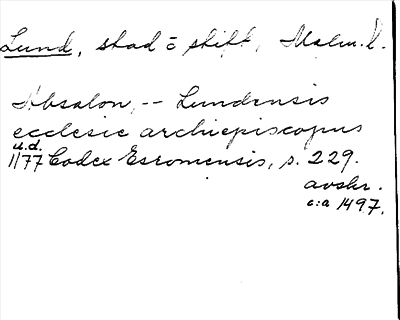 Lund, stad o stift, Malm. l.
Absalon, -- Lundensis
ecclesie archiepiscopus
u.d.
1177 Codex Esromensis, s. 229.
avskr.
c:a 1497.